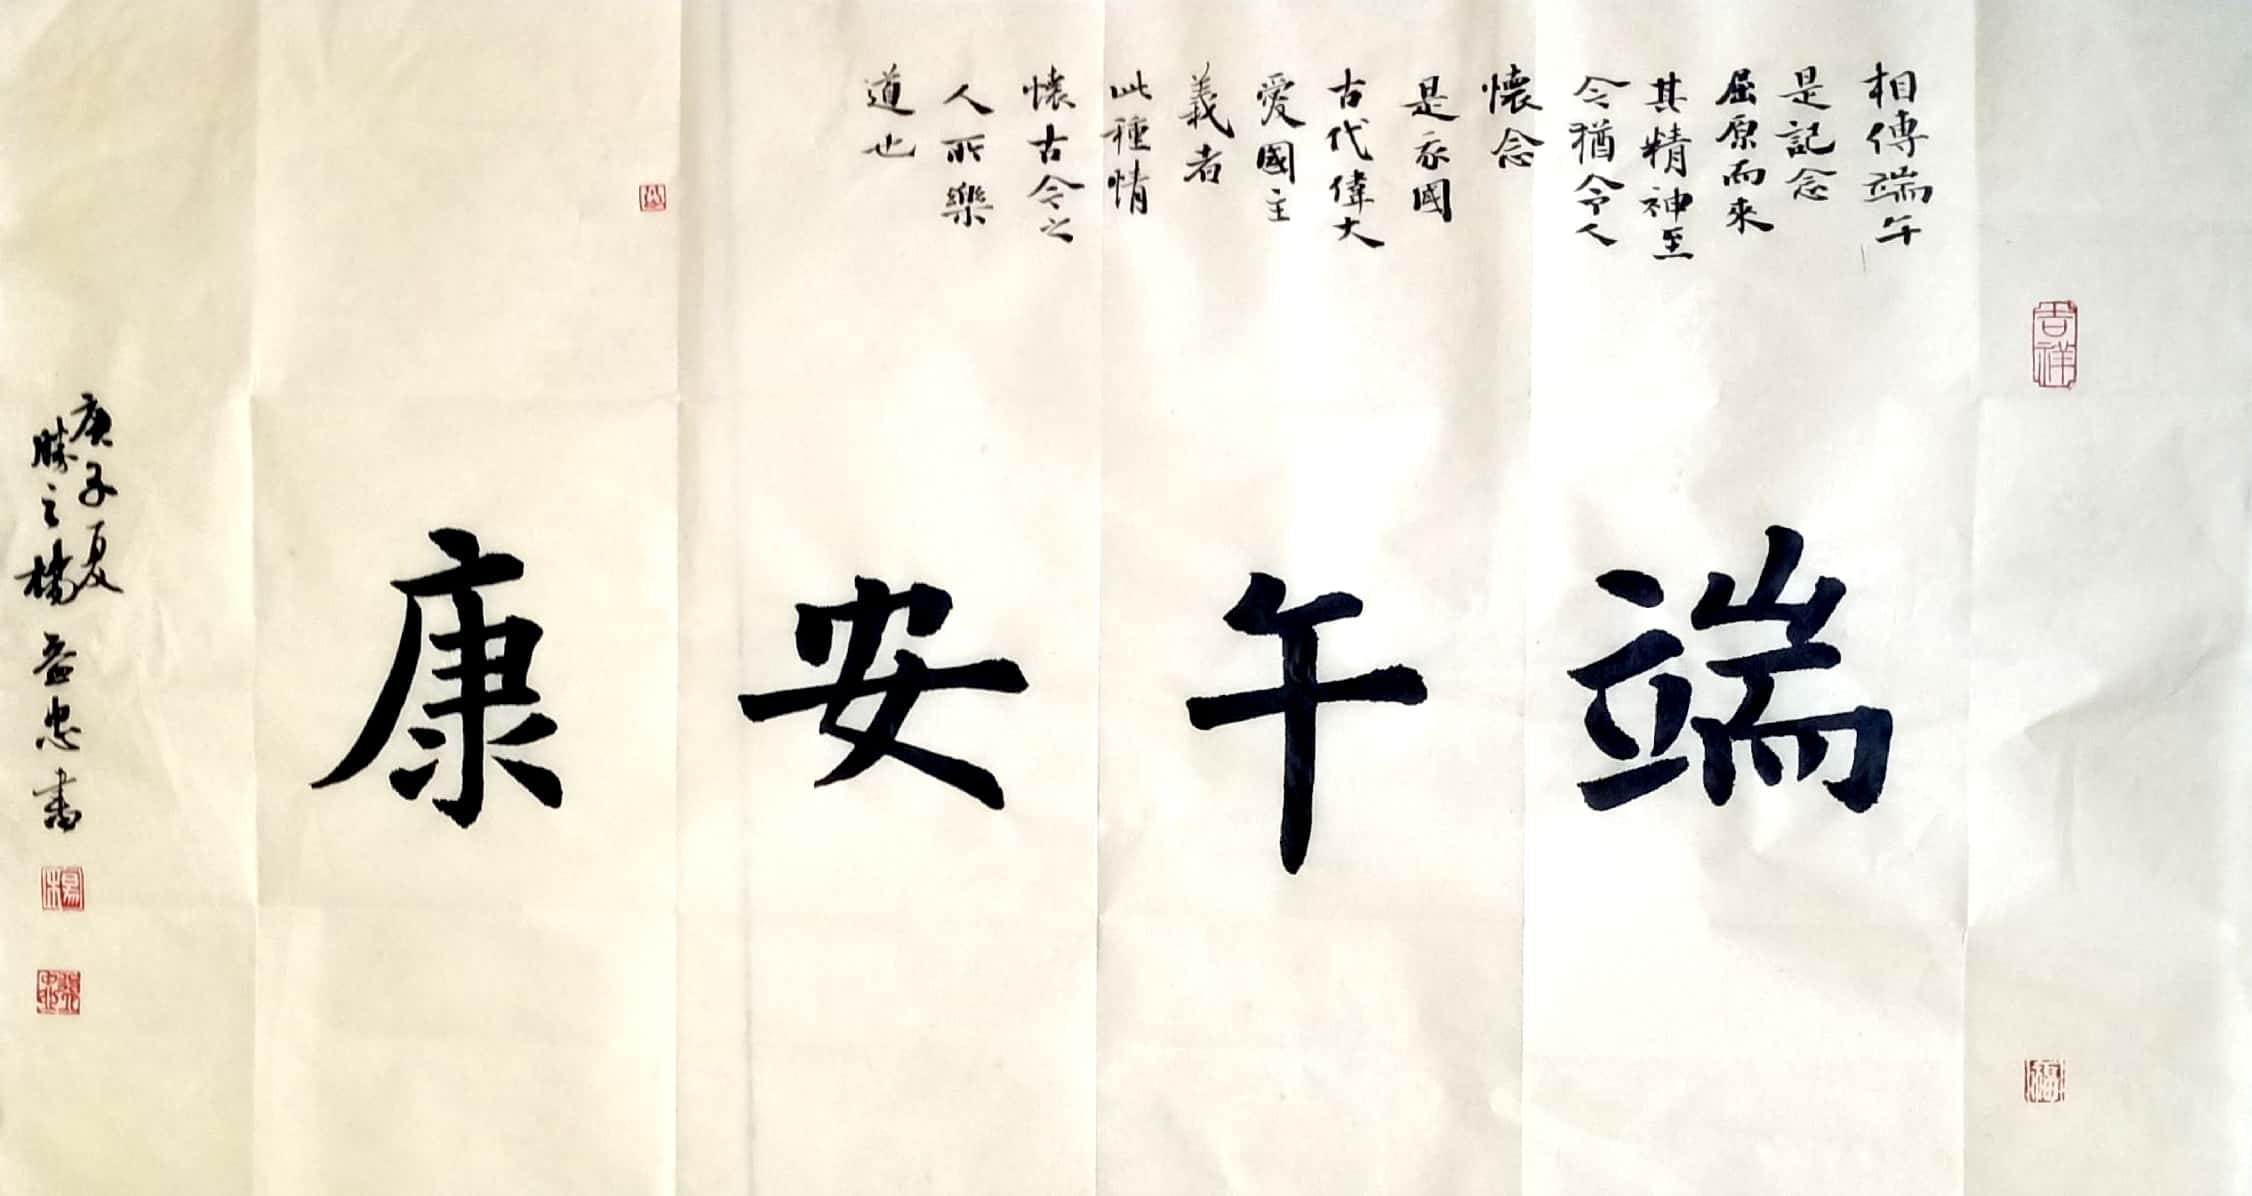 吉祥
相傳端午
是記念
屈原而來
其精神至
今猶令人
懷念
是我國
古代偉大
愛國主
義者
此種情
懷古今之
人所樂
道也
端午安康
庚子夏
勝之楊益忠書